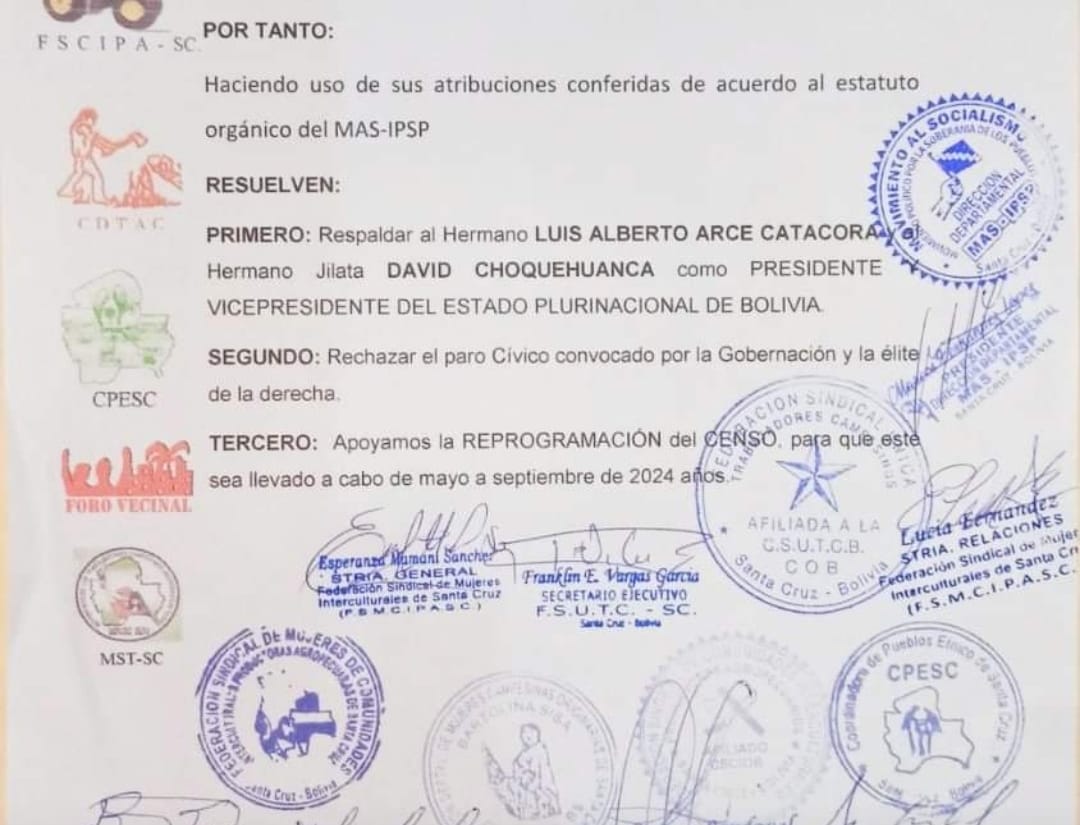 FSCIPA - SC.
POR TANTO:
Haciendo uso de sus atribuciones conferidas de acuerdo al estatuto
orgánico del MAS-IPSP
RESUELVEN:
CDTAC
PRIMERO: Respaldar al Hermano LUIS ALBERTO ARCE CATACORA y
Hermano Jilata DAVID CHOQUEHUANCA como PRESIDENTE
VICEPRESIDENTE DEL ESTADO PLURINACIONAL DE BOLIVIA.
SEGUNDO: Rechazar el paro Cívico convocado por la Gobernación y la élite
de la derecha.
CPESC
TERCERO: Apoyamos la REPROGRAMACIÓN del CENSO, para que este
sea llevado a cabo de mayo a septiembre de 2024 años.
FORO VECINAL
MST-SC
MOVIMIENTO AL SOCIALISMO
DIRECCION
DEPARTAMENTAL
MAS-IPSP
Santa Cruz
PRESIDENTE
DIRECCION DEPARTAMENTAL
MAS - IPSP
SANTA CRUZ - BOLIVIA
FEDERACION SINDICAL UNICA
TRABAJADORES CAMPESINOS
AFILIADA A LA
C.S.U.T.C.B.
COB
Santa Cruz - Bolivia
Esperanza Mamani Sanchez
STRIA. GENERAL
Federación Sindical de Mujeres
Interculturales de Santa Cruz
(F.S.M.C.I.P.A.S.C.)
Franklin E. Vargas Garcia
SECRETARIO EJECUTIVO
F.S.U.T.C. - SC.
Santa Cruz - Bolivia
Lucia Fernandez
STRIA. RELACIONES
Federación Sindical de Mujer
Interculturales de Santa Cr
(F.S.M.C.I.P.A.S.C.
FEDERACION SINDICAL DE MUJERES DE COMUNIDADES
PRODUCTORAS AGROPECUARIAS DE SANTA CRUZ
Santa Cruz - Bolivia
DE MUJERES CAMPESINAS ORIGINARIAS DE
BARTOLINA SISA
AFILIADO
CSCIOB
Coordinadora de Pueblos Etnico de Santa Cruz
CPESC
Santa Cruz Bolivia